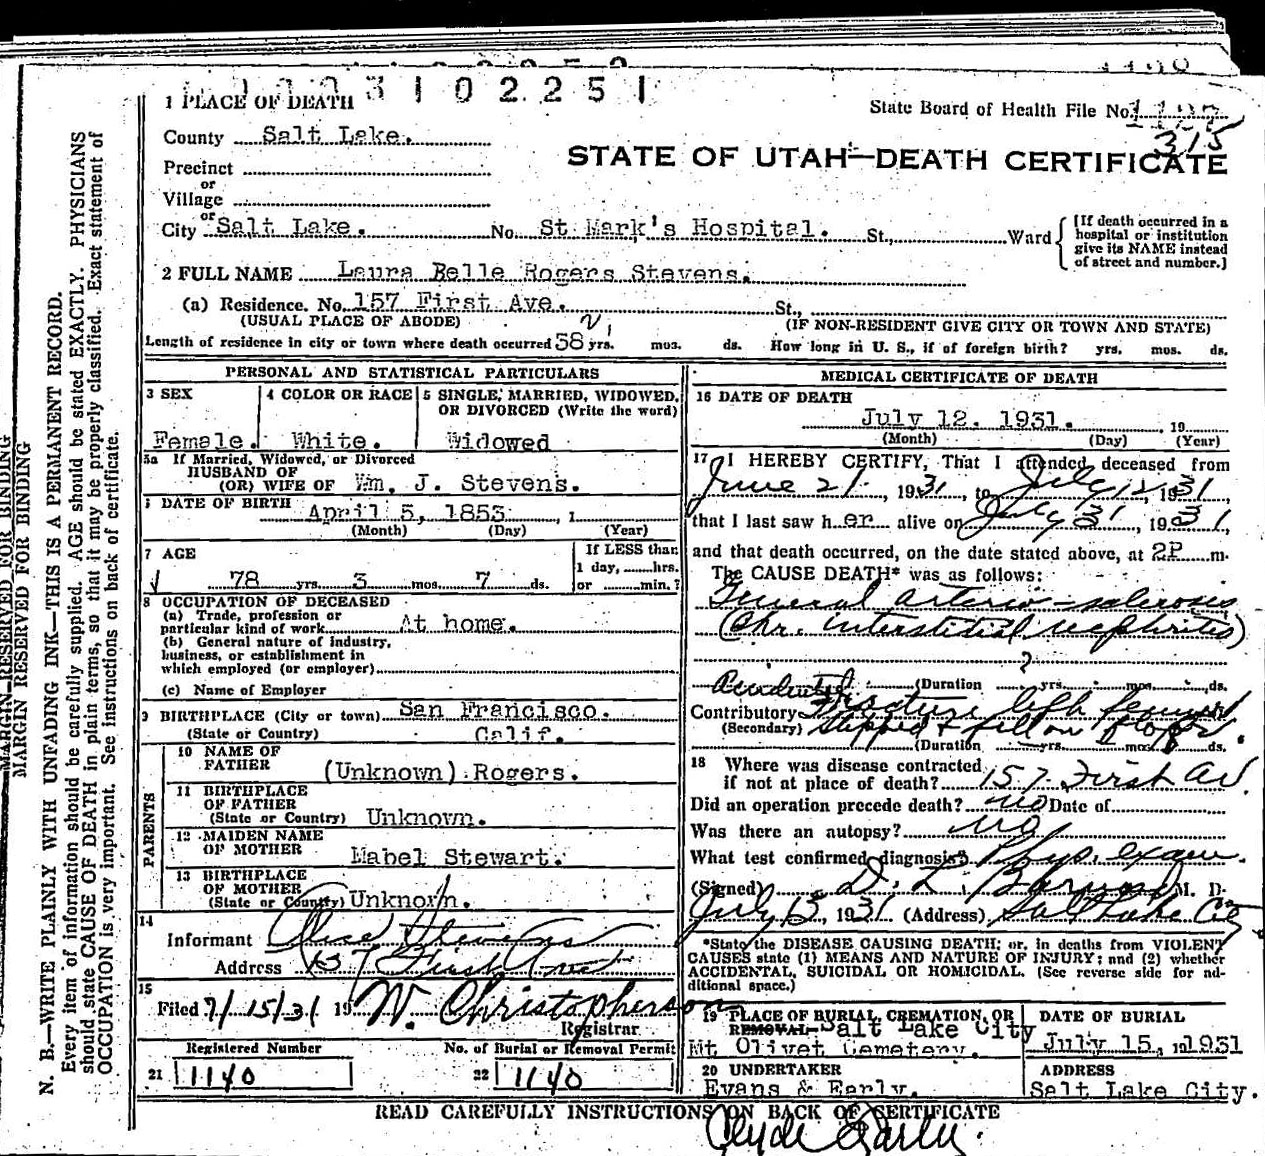 3 1 0 2 2 5 1
1 PLACE OF DEATH
State Board of Health File No.
315
County Salt Lake.
STATE OF UTAH—DEATH CERTIFICATE
Precinct
or
Village
or
City Salt Lake. No. St Mark's Hospital. St., Ward
[If death occurred in a
hospital or institution
give its NAME instead
of street and number.]
2 FULL NAME Laura Belle Rogers Stevens.
(a) Residence. No. 157 First Ave. St.,
(USUAL PLACE OF ABODE) (IF NON-RESIDENT GIVE CITY OR TOWN AND STATE)
Length of residence in city or town where death occurred 58 yrs. mos. ds. How long in U. S., if of foreign birth? yrs. mos. ds.
PERSONAL AND STATISTICAL PARTICULARS
3 SEX
Female.
4 COLOR OR RACE
White.
5 SINGLE, MARRIED, WIDOWED,
OR DIVORCED (Write the word)
Widowed
5a If Married, Widowed, or Divorced
HUSBAND OF
(OR) WIFE OF Wm. J. Stevens.
DATE OF BIRTH
April 5, 1853
(Month) (Day) (Year)
7 AGE
78 yrs. 3 mos. 7 ds.
If LESS than
1 day, hrs.
or min.?
8 OCCUPATION OF DECEASED
(a) Trade, profession or
particular kind of work At home.
(b) General nature of industry,
business, or establishment in
which employed (or employer)
(c) Name of Employer
9 BIRTHPLACE (City or town) San Francisco.
(State or Country) Calif.
PARENTS
10 NAME OF
FATHER (Unknown) Rogers.
11 BIRTHPLACE
OF FATHER
(State or Country) Unknown.
12 MAIDEN NAME
OF MOTHER Mabel Stewart.
13 BIRTHPLACE
OF MOTHER
(State or Country) Unknown.
14
Informant Alice Stevens
Address 157 First Ave
15
Filed 7/15/31 19 W. Christopherson
Registrar
Registered Number No. of Burial or Removal Permit
21 1140 22 1140
MEDICAL CERTIFICATE OF DEATH
16 DATE OF DEATH
July 12. 1931. , 19
(Month) (Day) (Year)
17 I HEREBY CERTIFY, That I attended deceased from
June 21, 1931, to July 12 1931
that I last saw her alive on July 31, 1931,
and that death occurred, on the date stated above, at 2P m.
The CAUSE DEATH* was as follows:
General arterio-sclerosis
(Chr. interstitial nephritis)
?
Accidental (Duration yrs. mos. ds.
Contributory Fracture left femur
(Secondary) slipped & fell on floor
(Duration yrs. mos. ds.
18 Where was disease contracted
if not at place of death? 157 First Av.
Did an operation precede death? no Date of
Was there an autopsy? no
What test confirmed diagnosis? Phys. exam.
(Signed) D. L. Barnard M. D.
July 13, 1931 (Address) Salt Lake City
*State the DISEASE CAUSING DEATH; or, in deaths from VIOLENT
CAUSES state (1) MEANS AND NATURE OF INJURY; and (2) whether
ACCIDENTAL, SUICIDAL OR HOMICIDAL. (See reverse side for ad-
ditional space.)
19 PLACE OF BURIAL, CREMATION, OR
REMOVAL Salt Lake City
Mt Olivet Cemetery.
DATE OF BURIAL
July 15, 1931
20 UNDERTAKER
Evans & Early.
ADDRESS
Salt Lake City.
READ CAREFULLY INSTRUCTIONS ON BACK OF CERTIFICATE
Clyde Early.
MARGIN RESERVED FOR BINDING
MARGIN RESERVED FOR BINDING
N. B.—WRITE PLAINLY WITH UNFADING INK—THIS IS A PERMANENT RECORD.
Every item of information should be carefully supplied. AGE should be stated EXACTLY. PHYSICIANS
should state CAUSE OF DEATH in plain terms, so that it may be properly classified. Exact statement of
OCCUPATION is very important. See instructions on back of certificate.